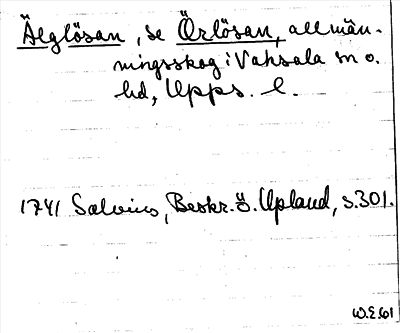 Älglösan, se Örlösan, allmän-
ningsskog i Vaksala sn o.
hd, Upps. l.
1741 Salvius, Beskr. ö. Upland, s. 301.
W.E. 61